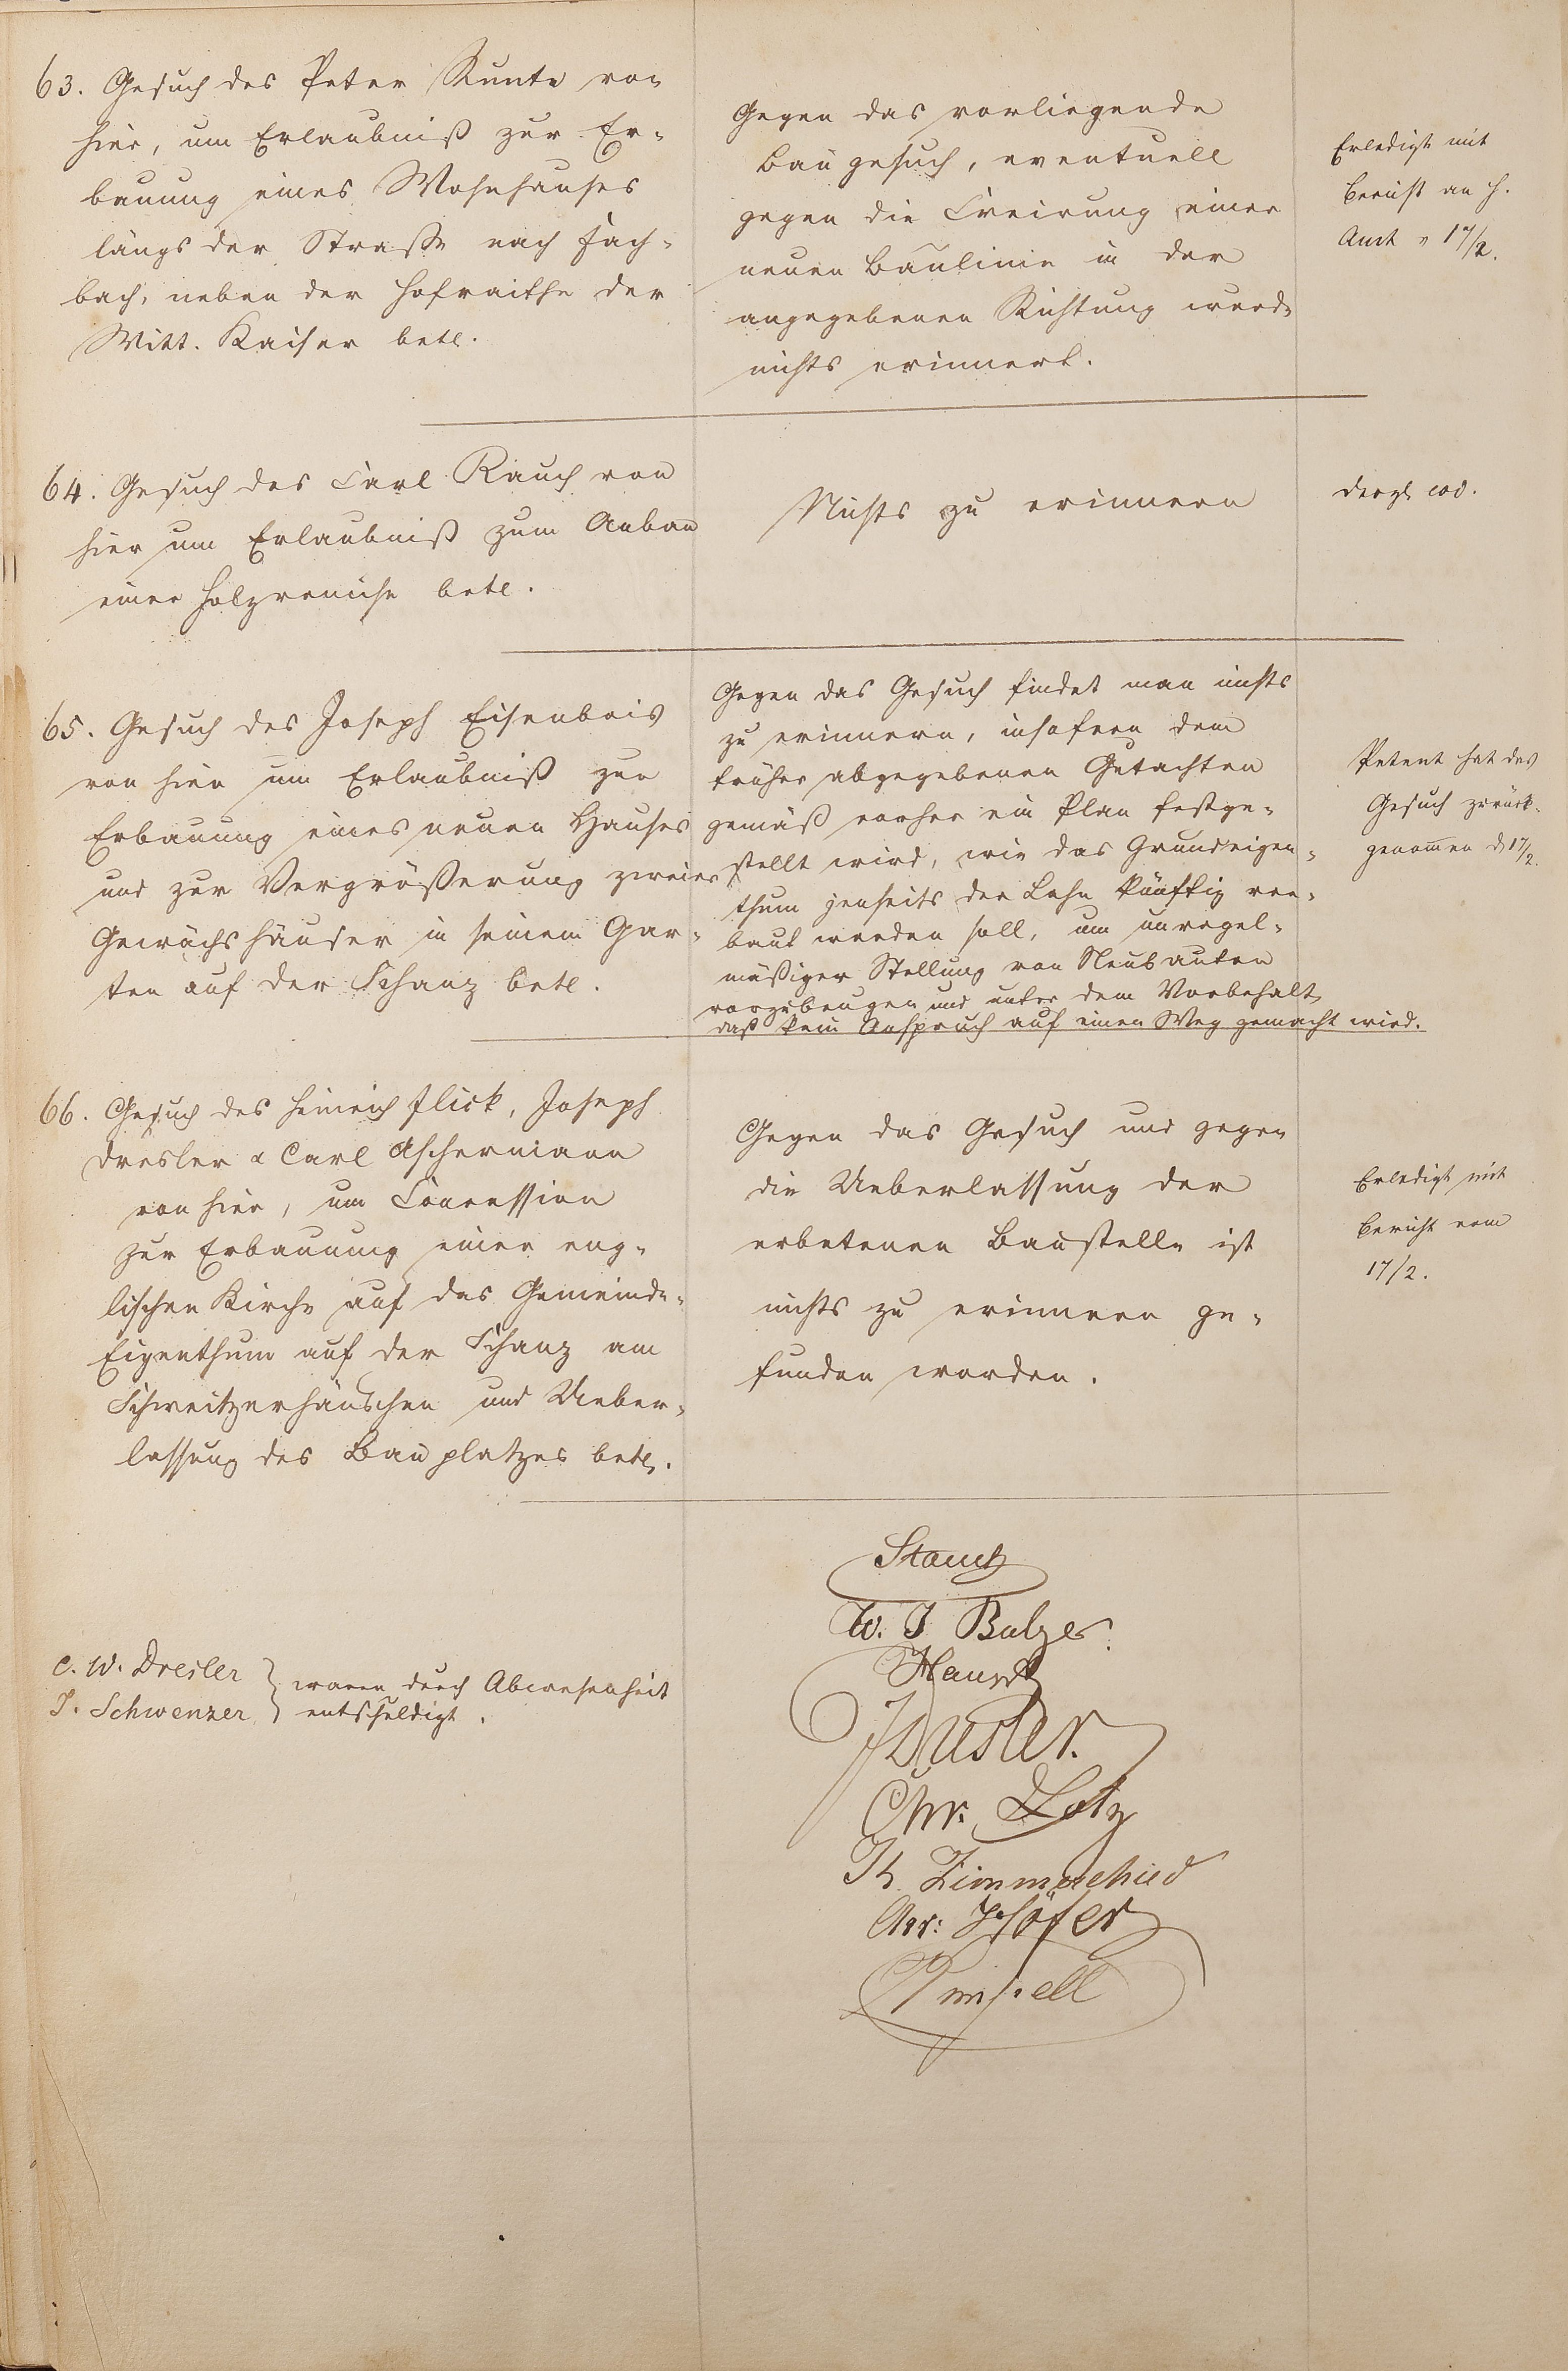 63. Gesuch des Peter Kunte von
hier, um Erlaubniß zur Er-
bauung eines Wohnhauses
längs der Straße nach Fach-
bach, neben der Hofraithe der
Witt. Kaiser betr.
Gegen das vorliegende
Baugesuch, eventuell
gegen die Creirung einer
neuen Baulinie in der
angegebenen Richtung wurde
nichts erinnert.
Erledigt mit
Bericht an H.
Amt v 17/2.
64. Gesuch des Carl Rauch von
hier um Erlaubniß zum Anbau
einer Holzremise betr.
Nichts zu erinnern
dergl. eod.
65. Gesuch des Joseph Eisenbeis
von hier um Erlaubniß zur
Erbauung eines neuen Hauses
und zur Vergrößerung zweier
Gewächshäuser in seinem Gar-
ten auf der Schanz betr.
Gegen das Gesuch findet man nichts
zu erinnern, insofern dem
früher abgegebenen Gutachten
gemäß vorher ein Plan festge-
stellt wird, wie das Grundeigen-
thum jenseits der Lahn künftig ver-
baut werden soll, um unregel-
mäßiger Stellung von Neubauten
vorzubeugen und unter dem Vorbehalt,
daß kein Anspruch auf einen Weg gemacht wird.
Petent hat das
Gesuch zurück-
genommen d 17/2.
66. Gesuch des Heinrich Flick, Joseph
Dresler & Carl Aschermann
von hier, um Concession
zur Erbauung einer eng-
lischen Kirche auf das Gemeinde-
Eigenthum auf der Schanz am
Schweitzerhäuschen und Ueber-
lassung des Bauplatzes betr.
Gegen das Gesuch und gegen
die Ueberlassung der
erbetenen Baustelle ist
nichts zu erinnern ge-
funden worden.
Erledigt mit
Bericht vom
17/2.
C. W. Dresler
J. Schwenzer
waren durch Abwesenheit
entschuldigt.
W. J Balzer
JDresler.
Chr. Lotz
Th. Zimmerschied
Chr: Höfer